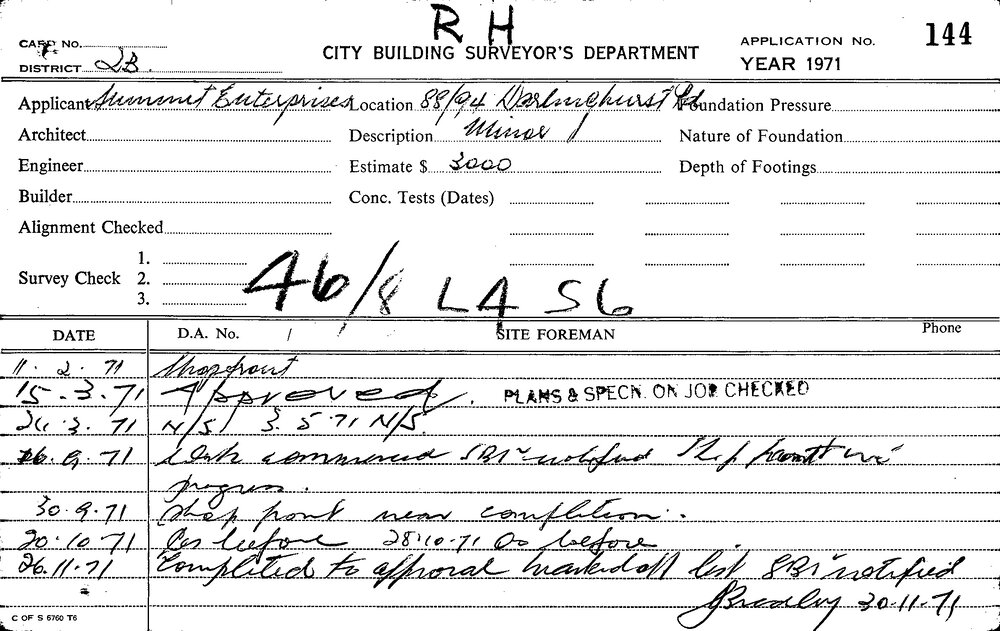 R H
CARD No.
CITY BUILDING SURVEYOR'S DEPARTMENT
APPLICATION No. 144
DISTRICT 2B.
YEAR 1971
Applicant Summit Enterprises Location 88/94 Darlinghurst Rd Foundation Pressure
Architect Description Minor Nature of Foundation
Engineer Estimate $ 3000 Depth of Footings
Builder Conc. Tests (Dates)
Alignment Checked
1.
Survey Check 2.
3.
46/8 LA 56
DATE D.A. No. / SITE FOREMAN Phone
11. 2. 71 Shopfront
15. 3. 71 Approved. PLANS & SPECN. ON JOB CHECKED
24. 3. 71 N/S 3. 5. 71 N/S.
16. 9. 71 Work commenced notified Shop front in
progress.
30. 9. 71 Shop front near completion.
20. 10. 71 As before 28.10.71 As before
26. 11. 71 Completed to approval marked off list notified
30.11.71
C OF S 6760 T6